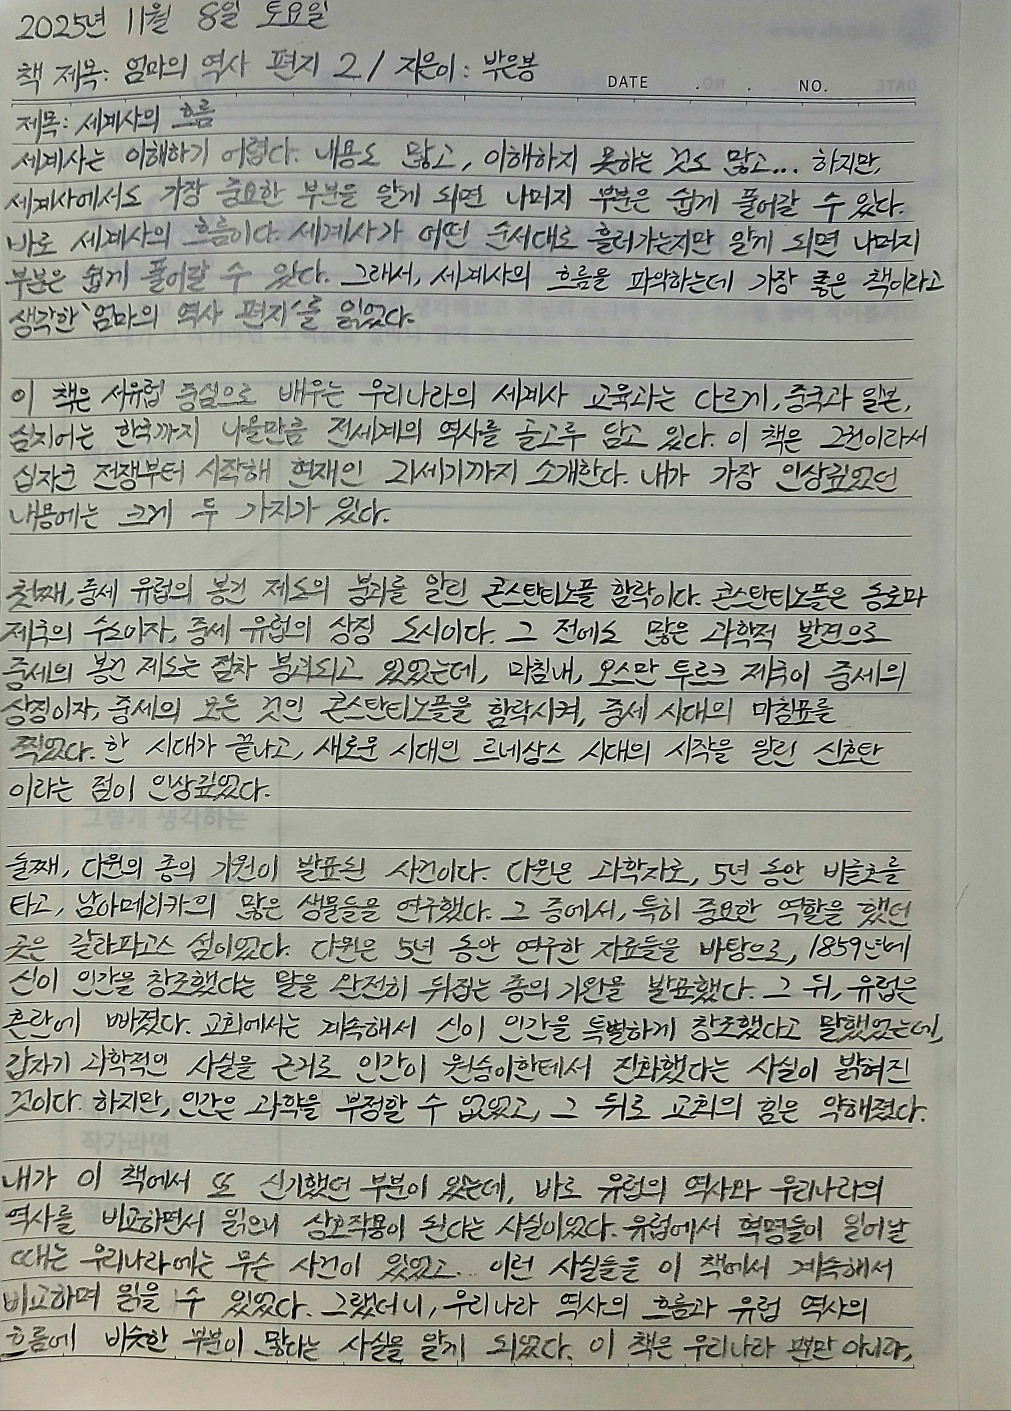 2025년 11월 8일 토요일
책 제목: 엄마의 역사 편지 2 / 지은이: 박은봉
DATE . . NO.
제목: 세계사의 흐름
세계사는 이해하기 어렵다. 내용도 많고, 이해하지 못하는 것도 많고... 하지만,
세계사에서도 가장 중요한 부분을 알게 되면 나머지 부분은 쉽게 풀어갈 수 있다.
바로 세계사의 흐름이다. 세계사가 어떤 순서대로 흘러가는지만 알게 되면 나머지
부분은 쉽게 풀어갈 수 있다. 그래서, 세계사의 흐름을 파악하는데 가장 좋은 책이라고
생각한 '엄마의 역사 편지'를 읽었다.
이 책은 서유럽 중심으로 배우는 우리나라의 세계사 교육과는 다르게, 중국과 일본,
심지어는 한국까지 나올만큼 전세계의 역사를 골고루 담고 있다. 이 책은 그런이라서
십자군 전쟁부터 시작해 현재인 21세기까지 소개한다. 내가 가장 인상깊었던
내용에는 크게 두 가지가 있다.
첫째, 중세 유럽의 봉건 제도의 붕괴를 알린 콘스탄티노플 함락이다. 콘스탄티노플은 동로마
제국의 수도이자, 중세 유럽의 상징 도시이다. 그 전에도 많은 과학적 발견으로
중세의 봉건 제도는 점차 붕괴되고 있었는데, 마침내, 오스만 투르크 제국이 중세의
상징이자, 중세의 모든 것인 콘스탄티노플을 함락시켜, 중세 시대의 마침표를
찍었다. 한 시대가 끝나고, 새로운 시대인 르네상스 시대의 시작을 알린 신호탄
이라는 점이 인상깊었다.
둘째, 다윈의 종의 기원이 발표된 사건이다. 다윈은 과학자로, 5년 동안 비글호를
타고, 남아메리카의 많은 생물들을 연구했다. 그 중에서, 특히 중요한 역할을 했던
곳은 갈라파고스 섬이었다. 다윈은 5년 동안 연구한 자료들을 바탕으로, 1859년에
신이 인간을 창조했다는 말을 완전히 뒤집는 종의 기원을 발표했다. 그 뒤, 유럽은
혼란에 빠졌다. 교회에서는 계속해서 신이 인간을 특별하게 창조했다고 말했었는데,
갑자기 과학적인 사실을 근거로 인간이 원숭이한테서 진화했다는 사실이 밝혀진
것이다. 하지만, 인간은 과학을 부정할 수 없었고, 그 뒤로 교회의 힘은 약해졌다.
내가 이 책에서 또 신기했던 부분이 있는데, 바로 유럽의 역사와 우리나라의
역사를 비교하면서 읽으니 상호작용이 된다는 사실이었다. 유럽에서 혁명들이 일어날
때는 우리나라에는 무슨 사건이 있었고... 이런 사실들을 이 책에서 계속해서
비교하며 읽을 수 있었다. 그랬더니, 우리나라 역사의 흐름과 유럽 역사의
흐름에 비슷한 부분이 많다는 사실을 알게 되었다. 이 책은 우리나라 뿐만 아니라,